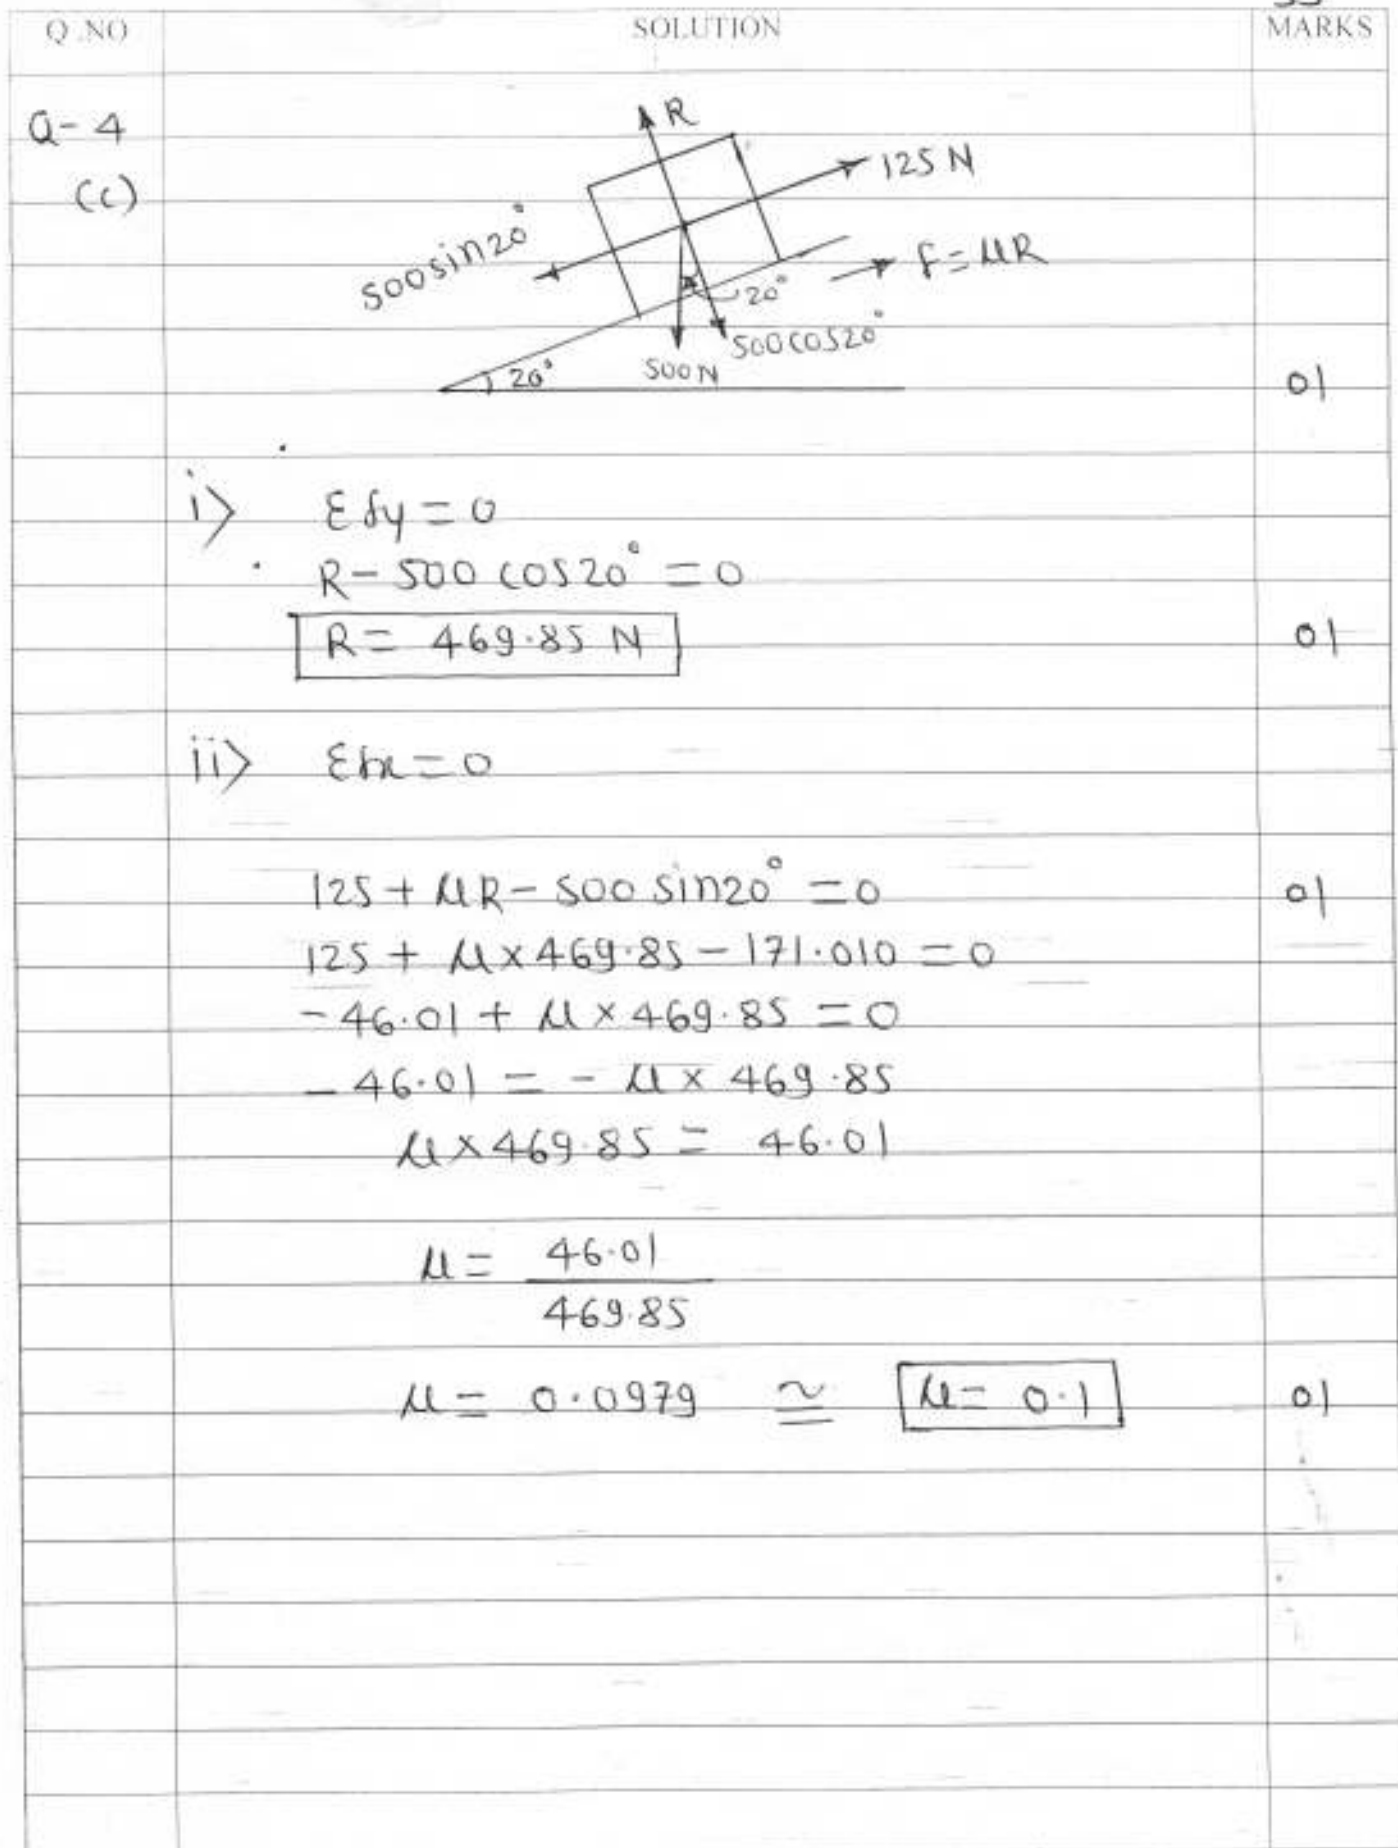 Q.NO SOLUTION MARKS
Q-4
(c)
R
125 N
500sin20°
F=μR
20°
500cos20°
500N
20°
01
i> Σfy=0
R-500 cos20°=0
R= 469.85 N 01
ii> Σfx=0
125+μR-500 sin20°=0 01
125+ μ×469.85-171.010=0
-46.01+ μ×469.85=0
-46.01= -μ× 469.85
μ×469.85= 46.01
μ= 46.01
469.85
μ= 0.0979 ≅ μ= 0.1 01